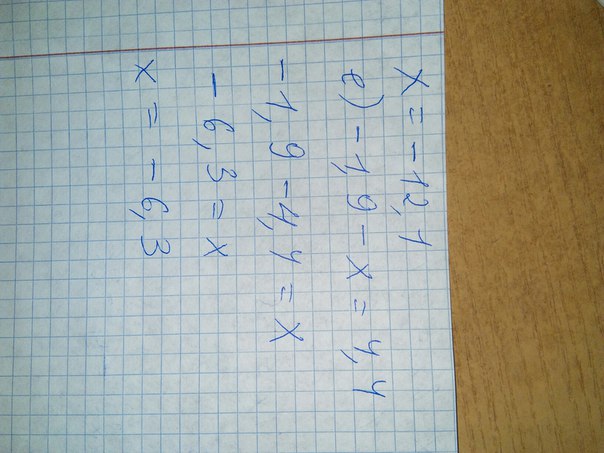 x = -12,1
е) -1,9 - x = 4,4
-1,9 - 4,4 = x
-6,3 = x
x = -6,3